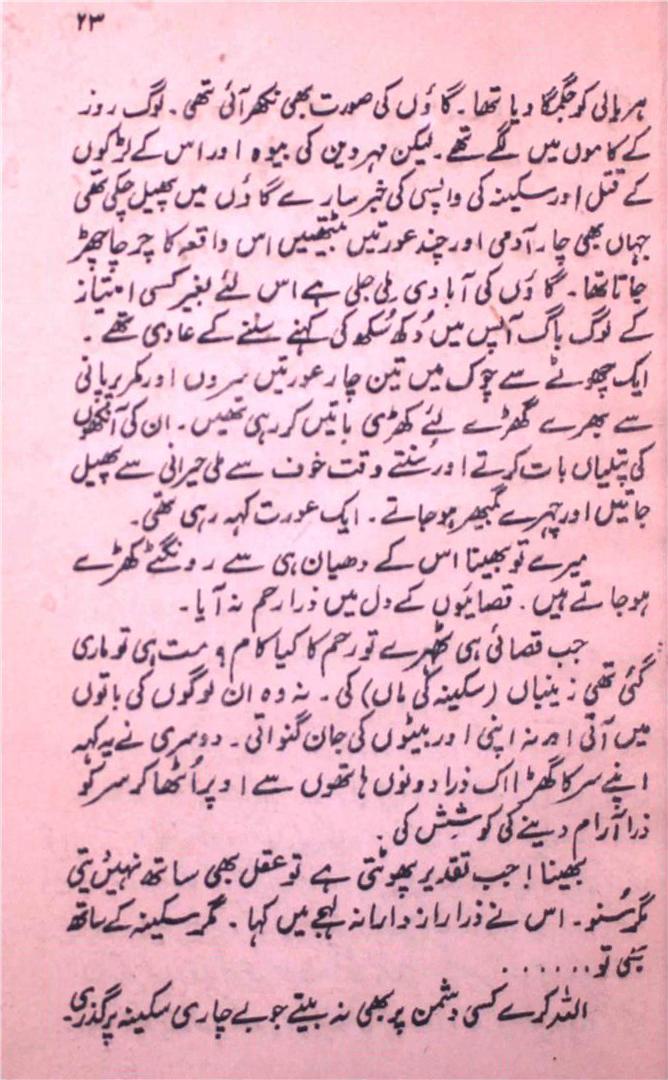 ۲۳
ہریالی کو جگمگا دیا تھا۔ گاؤں کی صورت بھی نکھر آئی تھی۔ لوگ روز
کے کاموں میں لگے تھے۔ لیکن مہر دین کی بیوہ اور اس کے لڑکوں
کے قتل اور سکینہ کی واپسی کی خبر سارے گاؤں میں پھیل چکی تھی
جہاں بھی چار آدمی اور چند عورتیں بیٹھتیں اس واقعہ کا چرچا چھڑ
جاتا تھا۔ گاؤں کی آبادی ملی جلی ہے اس لئے بغیر کسی امتیاز
کے لوگ باگ آپس میں دُکھ سُکھ کی کہنے سننے کے عادی تھے۔
ایک چھوٹے سے چوک میں تین چار عورتیں سروں اور کمر پر پانی
سے بھرے گھڑے لئے کھڑی باتیں کر رہی تھیں۔ ان کی آنکھوں
کی پتلیاں بات کرتے اور سُنتے وقت خوف سے ملی حیرانی سے پھیل
جاتیں اور چہرے گمبھیر ہو جاتے۔ ایک عورت کہہ رہی تھی۔
میرے تو بھینا اس کے دھیان ہی سے رونگٹے کھڑے
ہو جاتے ہیں۔ قصائیوں کے دل میں ذرا رحم نہ آیا۔
جب قصائی ہی ٹھہرے تو رحم کا کیا کام؟ مت ہی تو ماری
گئی تھی زینباں (سکینہ کی ماں) کی۔ نہ وہ ان لوگوں کی باتوں
میں آتی اور نہ اپنی اور بیٹوں کی جان گنواتی۔ دوسری نے یہ کہہ
اپنے سر کا گھڑا اک ذرا دونوں ہاتھوں سے اوپر اُٹھا کر سر کو
ذرا آرام دینے کی کوشش کی۔
بھینا! جب تقدیر پھوٹتی ہے تو عقل بھی ساتھ نہیں دیتی
مگر سُنو۔ اس نے ذرا رازدارانہ لہجے میں کہا۔ مگر سکینہ کے ساتھ
بُئی تو......
اللہ کرے کسی دشمن پر بھی نہ بیتے جو بے چاری سکینہ پر گذری۔